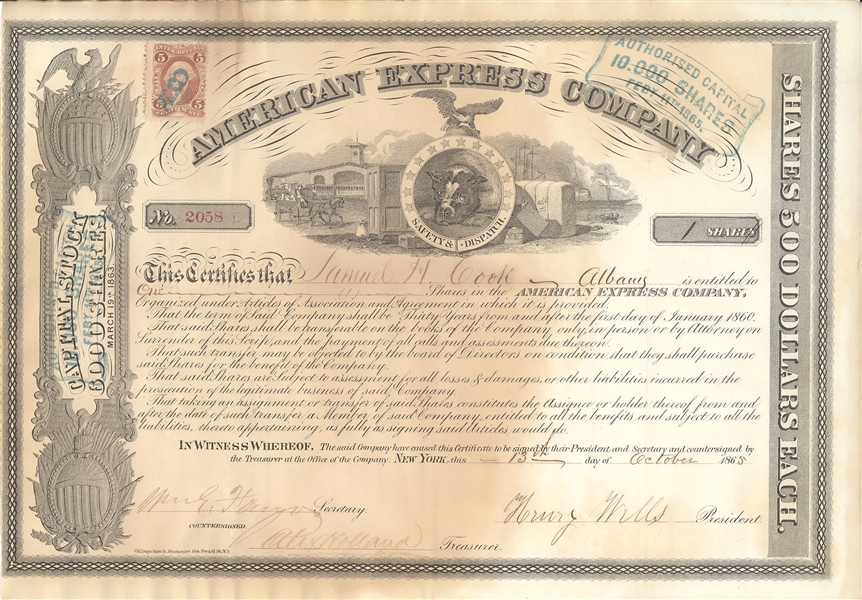 AMERICAN EXPRESS COMPANY
AUTHORISED CAPITAL
10.000 SHARES
FEBY 11TH 1865.
5 5
5 5
SAFETY & DISPATCH.
No. 2058
1 SHARES
CAPITAL STOCK
6000 SHARES
MARCH 19TH 1863
SHARES 500 DOLLARS EACH.
This Certifies that Samuel H. Cook Albany is entitled to
One Shares in the AMERICAN EXPRESS COMPANY,
Organized under Articles of Association and Agreement in which it is provided.
That the term of Said Company shall be Thirty Years from and after the first day of January 1860.
That said Shares shall be transferable on the books of the Company only, in person or by Attorney on
Surrender of this Scrip, and the payment of all calls and assessments due thereon.
That such transfer may be objected to by the board of Directors on condition that they shall purchase
said Shares for the benefit of the Company.
That said Shares are Subject to assessment for all losses & damages, or other liabilities incurred in the
prosecution of the legitimate business of said Company.
That taking an assignment or transfer of said Shares constitutes the Assignee or holder thereof from and
after the date of such transfer a Member of said Company, entitled to all the benefits and subject to all the
liabilities, thereto appertaining, as fully as signing said Articles would do.
IN WITNESS WHEREOF, The said Company have caused this Certificate to be signed by their President and Secretary and countersigned by
the Treasurer at the Office of the Company. NEW YORK, this 13th day of October 1865
Wm G. Fargo Secretary. Henry Wells President.
COUNTERSIGNED
Holland Treasurer.